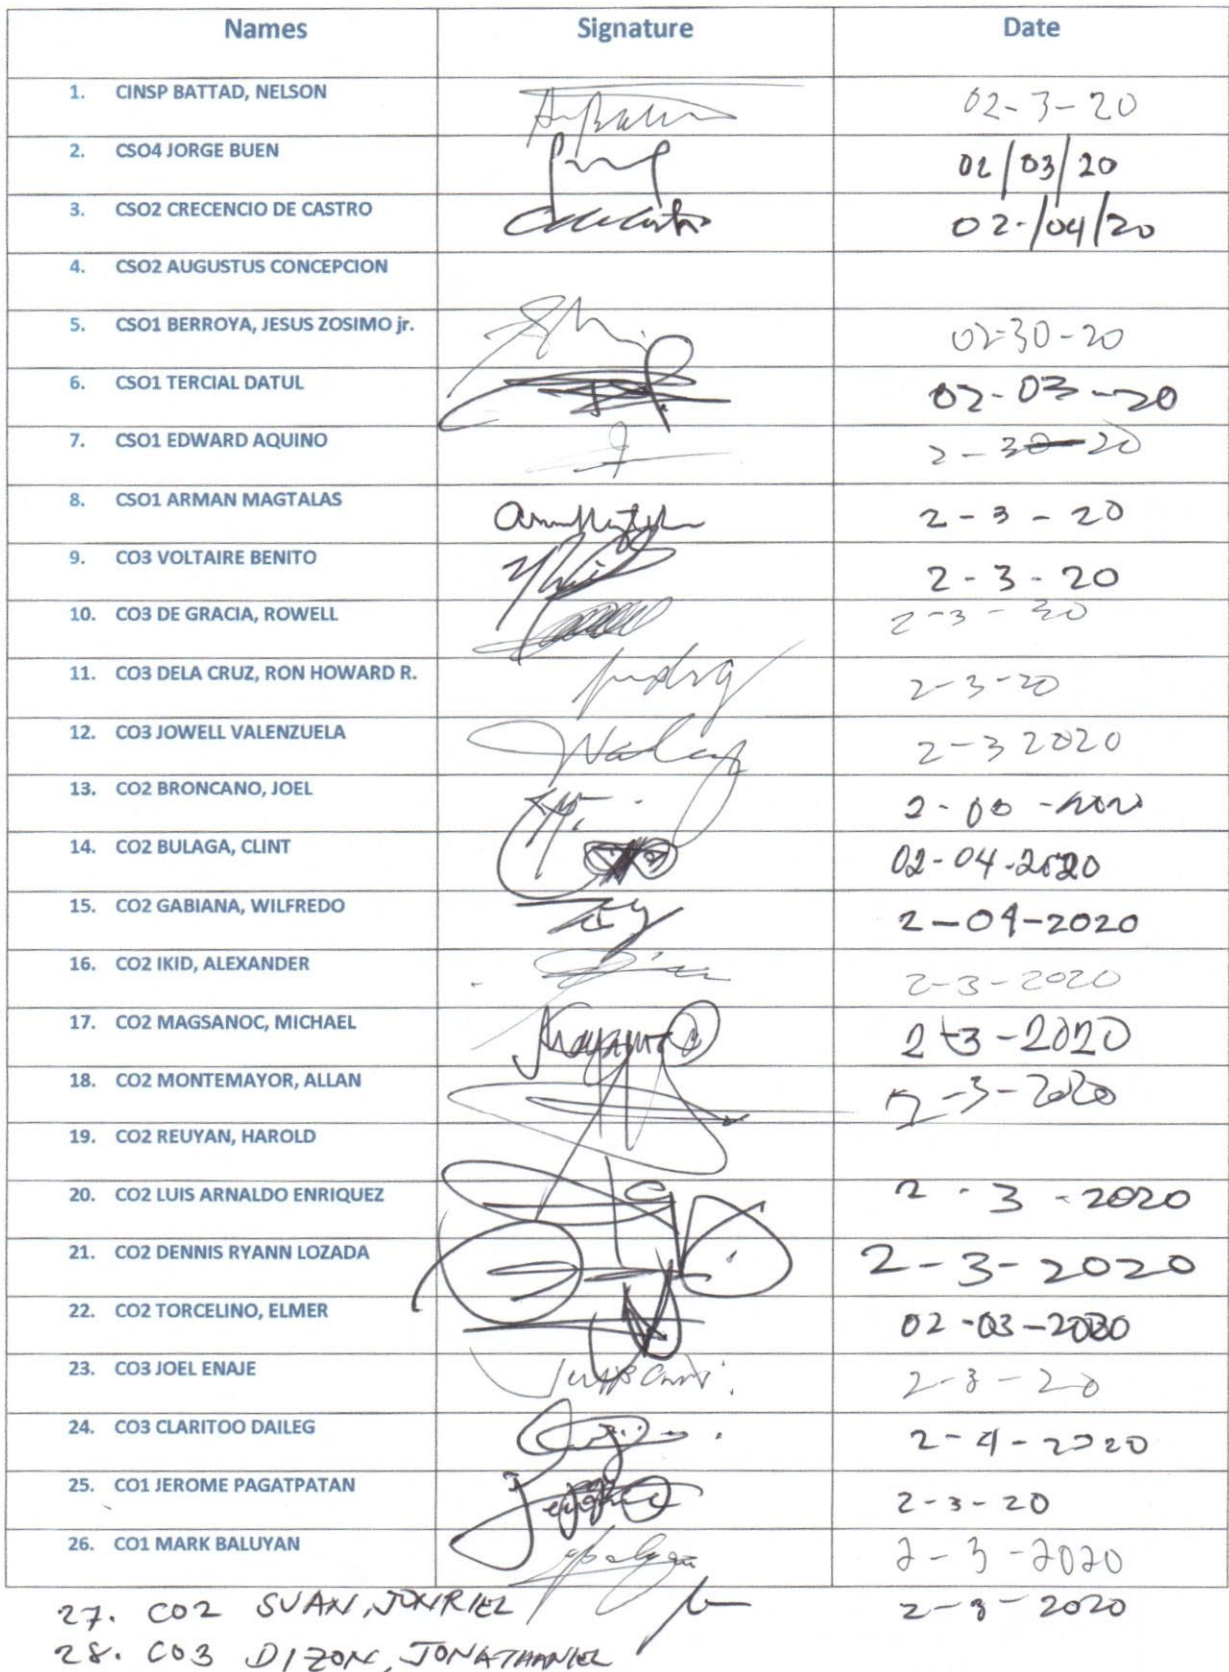 Names Signature Date
1. CINSP BATTAD, NELSON 02-3-20
2. CSO4 JORGE BUEN 02/03/20
3. CSO2 CRECENCIO DE CASTRO 02-/04/20
4. CSO2 AUGUSTUS CONCEPCION
5. CSO1 BERROYA, JESUS ZOSIMO jr. 02-30-20
6. CSO1 TERCIAL DATUL 02-03-20
7. CSO1 EDWARD AQUINO
8. CSO1 ARMAN MAGTALAS 2-3-20
9. CO3 VOLTAIRE BENITO 2-3-20
10. CO3 DE GRACIA, ROWELL
11. CO3 DELA CRUZ, RON HOWARD R. 2-3-20
12. CO3 JOWELL VALENZUELA 2-3 2020
13. CO2 BRONCANO, JOEL
14. CO2 BULAGA, CLINT 02-04-2020
15. CO2 GABIANA, WILFREDO 2-04-2020
16. CO2 IKID, ALEXANDER 2-3-2020
17. CO2 MAGSANOC, MICHAEL 2-3-2020
18. CO2 MONTEMAYOR, ALLAN 2-3-2020
19. CO2 REUYAN, HAROLD
20. CO2 LUIS ARNALDO ENRIQUEZ 2-3-2020
21. CO2 DENNIS RYANN LOZADA 2-3-2020
22. CO2 TORCELINO, ELMER 02-03-2020
23. CO3 JOEL ENAJE 2-3-20
24. CO3 CLARITOO DAILEG 2-4-2020
25. CO1 JEROME PAGATPATAN 2-3-20
26. CO1 MARK BALUYAN 2-3-2020
27. CO2 SUAN, JONRIEL 2-3-2020
28. CO3 DIZON, JONATHANIEL